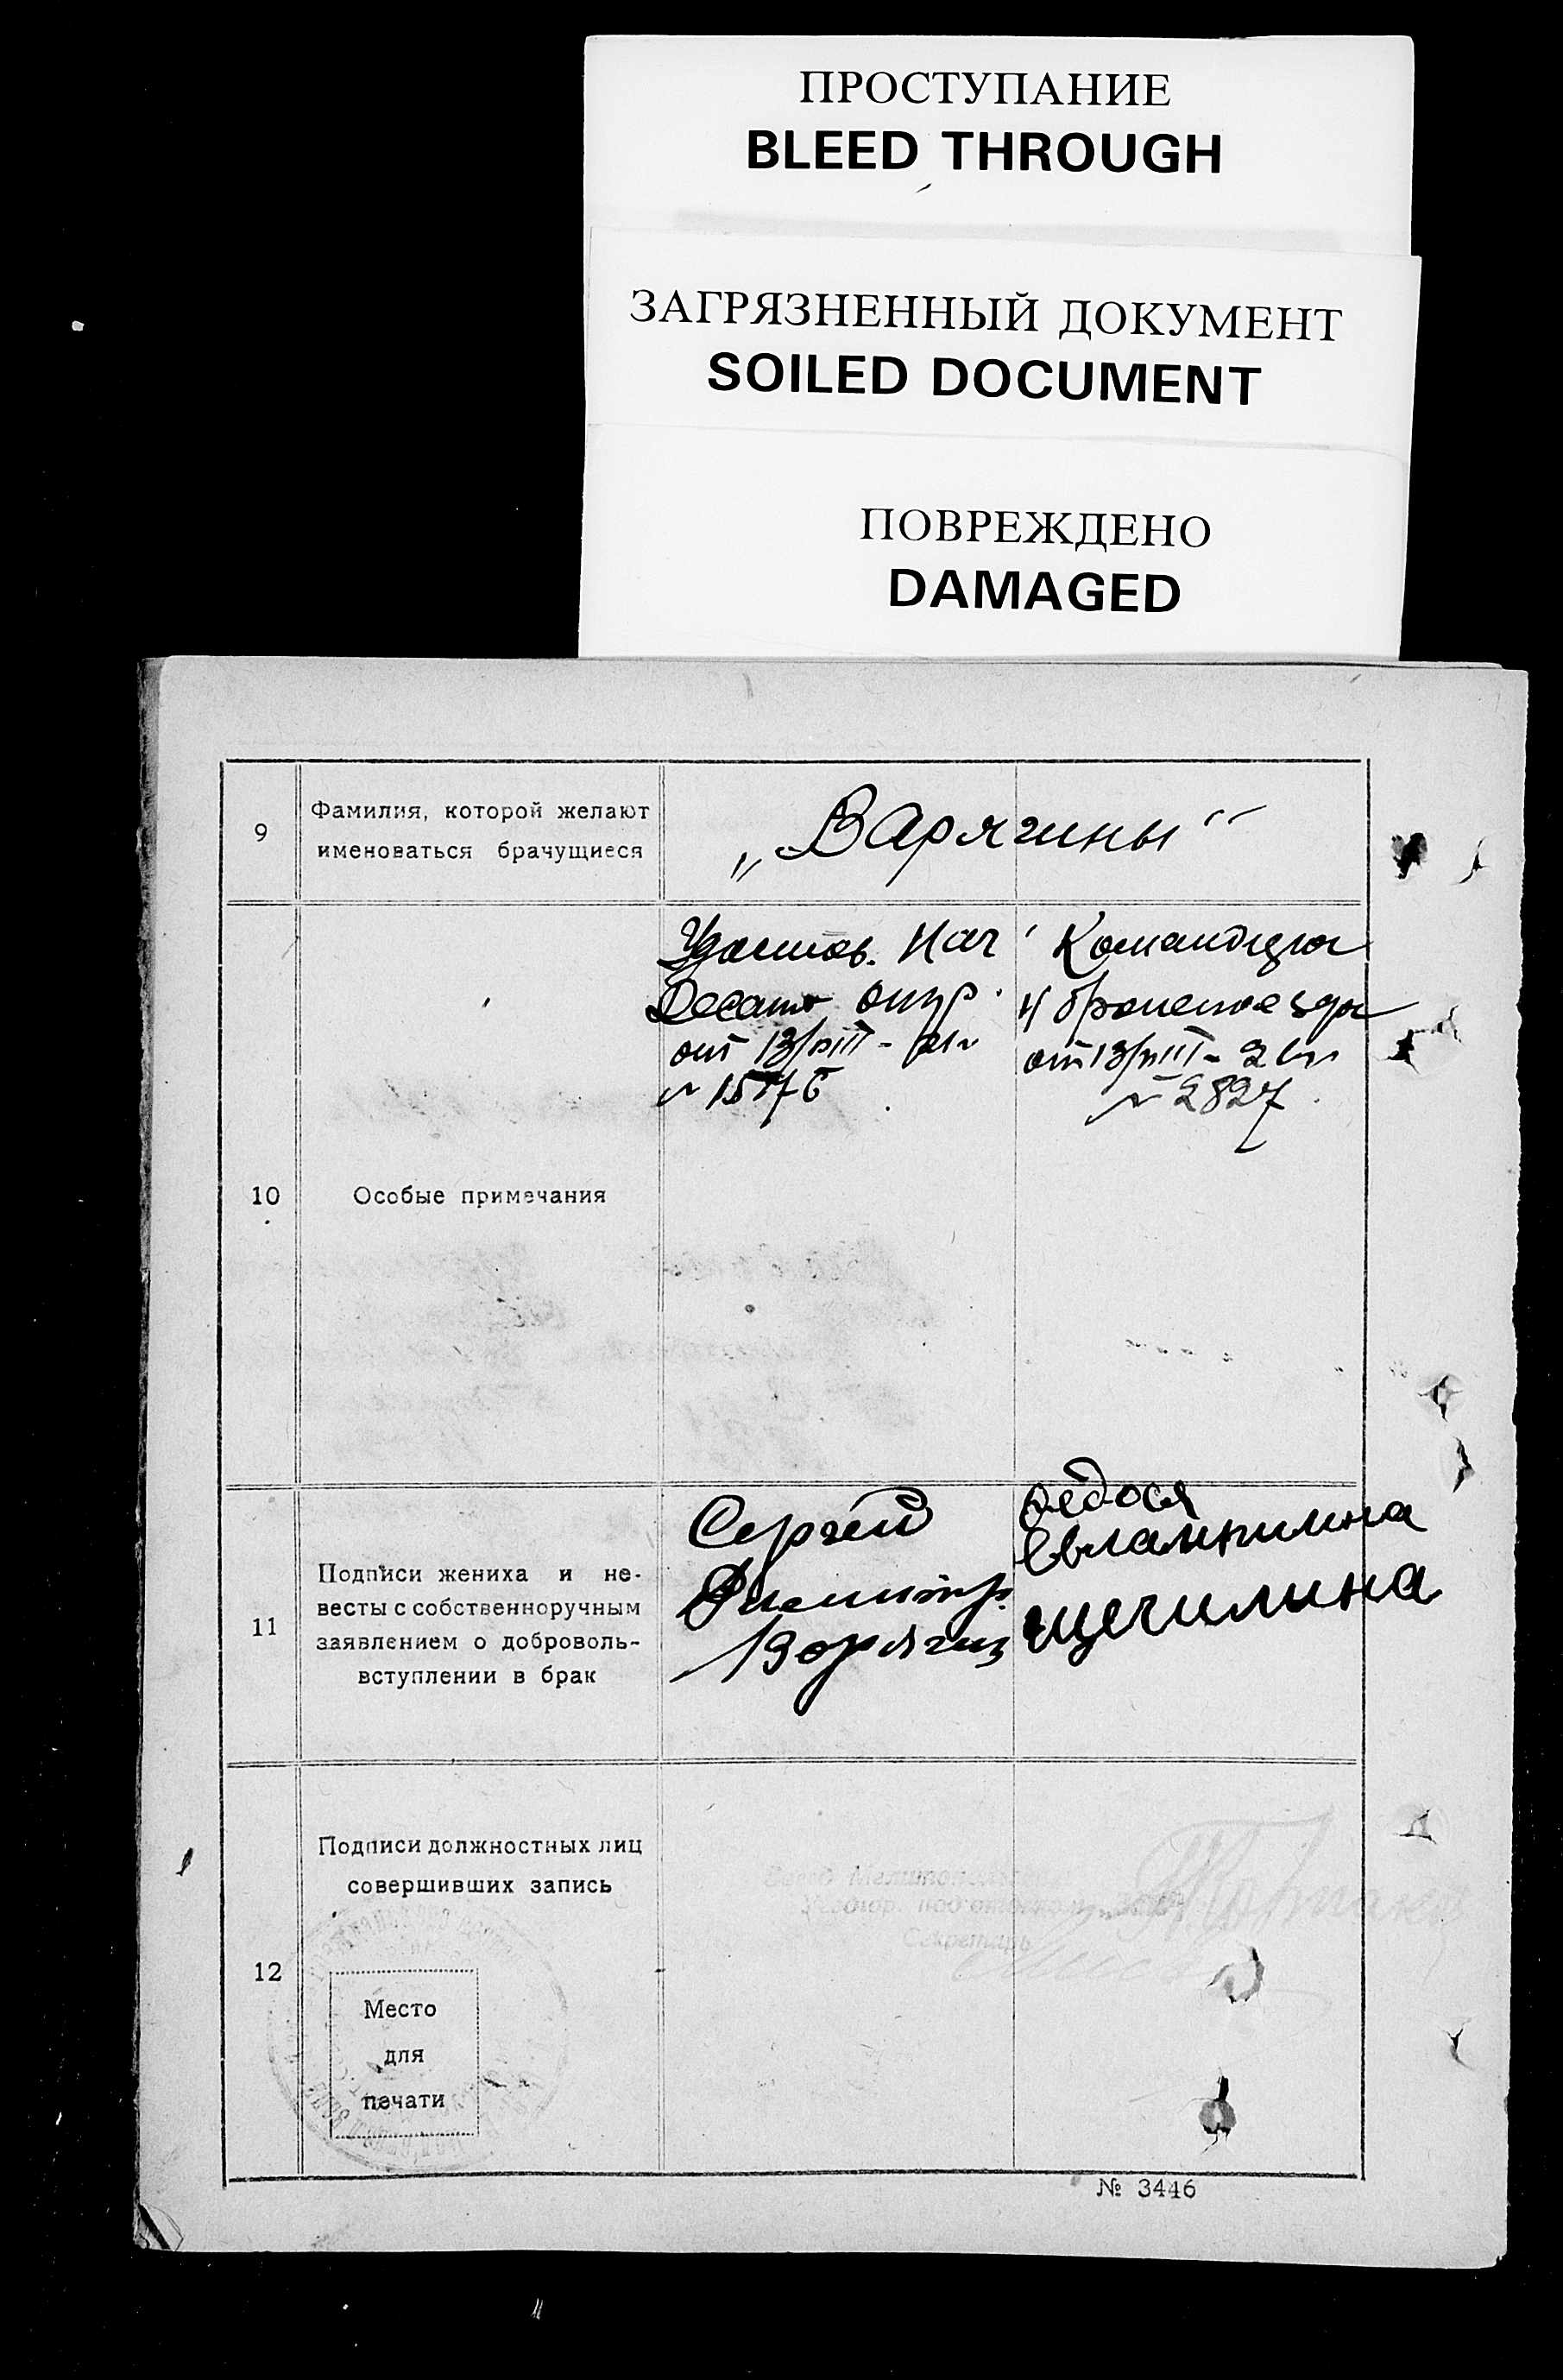 ПРОСТУПАНИЕ
BLEED THROUGH
ЗАГРЯЗНЕННЫЙ ДОКУМЕНТ
SOILED DOCUMENT
ПОВРЕЖДЕНО
DAMAGED
9
Фамилия, которой желают
именоваться брачущиеся
„Варягины“
10
Особые примечания
Удостов. Нач
Десант
от 13/VIII - 21г
Командира
бронепоезда
от 13/VIII - 21г
№ 2827
11
Подписи жениха и не-
весты с собственноручным
заявлением о доброволь-
вступлении в брак
Сергей
Димитр.
Варягин
Федося
Евлампиина
Щегилина
12
Подписи должностных лиц
совершивших запись
Секретарь
Место
для
печати
№ 3446